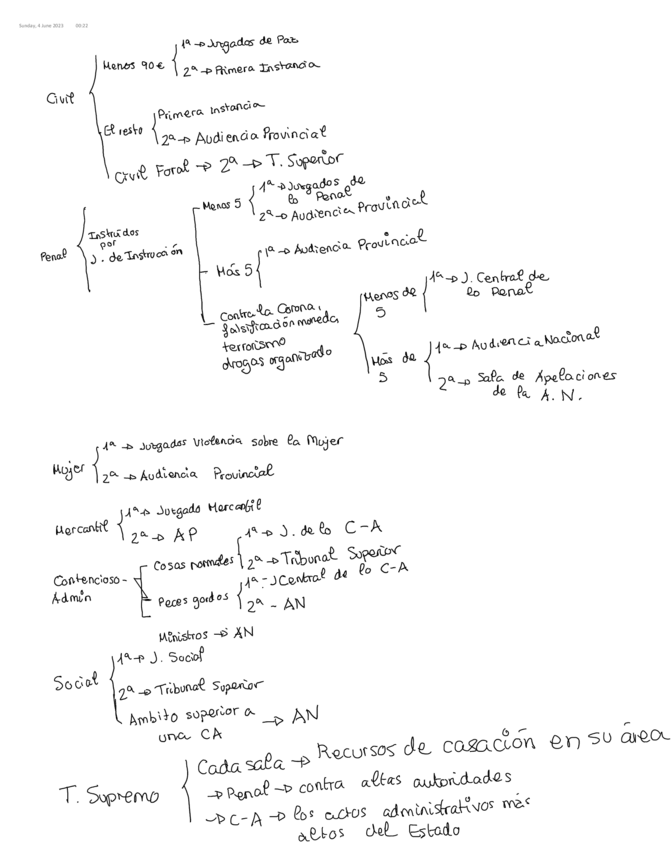 Sunday, 4 June 2023 09:22
Civil
Menos 90€
1ª → Juzgados de Paz
2ª → Primera Instancia
El resto
Primera instancia
2ª → Audiencia Provincial
Civil Foral → 2ª → T. Superior
Penal
Instruidos
por
J. de Instrucción
Menos 5
1ª → Juzgados de
lo Penal
2ª → Audiencia Provincial
Más 5
1ª → Audiencia Provincial
Contra la Corona,
falsificación moneda
terrorismo
drogas organizado
Menos de
5
1ª → J. Central de
lo Penal
Más de
5
1ª → Audiencia Nacional
2ª → Sala de Apelaciones
de la A.N.
Mujer
1ª → Juzgados Violencia sobre la Mujer
2ª → Audiencia Provincial
Mercantil
1ª → Juzgado Mercantil
2ª → AP
Contencioso-
Admin
Cosas normales
1ª → J. de lo C-A
2ª → Tribunal Superior
Peces gordos
1ª - J Central de lo C-A
2ª - AN
Ministros → AN
Social
1ª → J. Social
2ª → Tribunal Superior
Ambito superior a
una CA
→ AN
T. Supremo
Cada sala → Recursos de casación en su área
→ Penal → contra altas autoridades
→ C-A → los actos administrativos más
altos del Estado